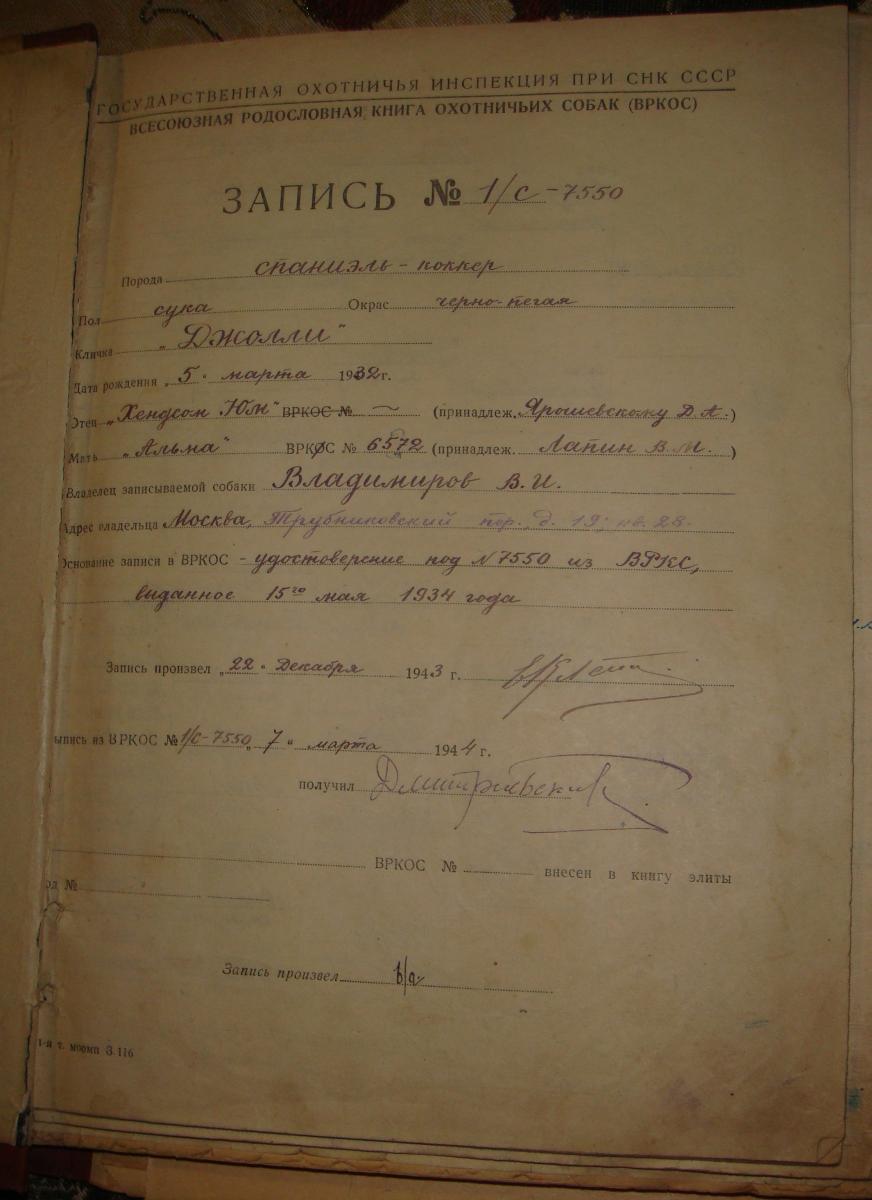 ГОСУДАРСТВЕННАЯ ОХОТНИЧЬЯ ИНСПЕКЦИЯ ПРИ СНК СССР
ВСЕСОЮЗНАЯ РОДОСЛОВНАЯ КНИГА ОХОТНИЧЬИХ СОБАК (ВРКОС)
ЗАПИСЬ № 1/с-7550
Порода спаниэль - коккер
Пол сука Окрас черно-пегая
Кличка „Джолли"
Дата рождения „5" марта 1932 г.
Отец „Хендсон Юм" ВРКОС № — (принадлеж. Ярошевскому Д. А.)
Мать „Альма" ВРКОС № 6572 (принадлеж. Лапин В. М.)
Владелец записываемой собаки Владимиров В. И.
Адрес владельца Москва, Трубниковский пер., д. 19; кв. 28.
Основание записи в ВРКОС - удостоверение под N 7550 из ВРКС,
выданное 15го мая 1934 года
Запись произвел „22" Декабря 1943 г.
ыпись из ВРКОС № 1/с-7550 „7" марта 1944 г.
получил
ВРКОС № внесен в книгу элиты
од №
Запись произвел
1-я т. моомп З. 116